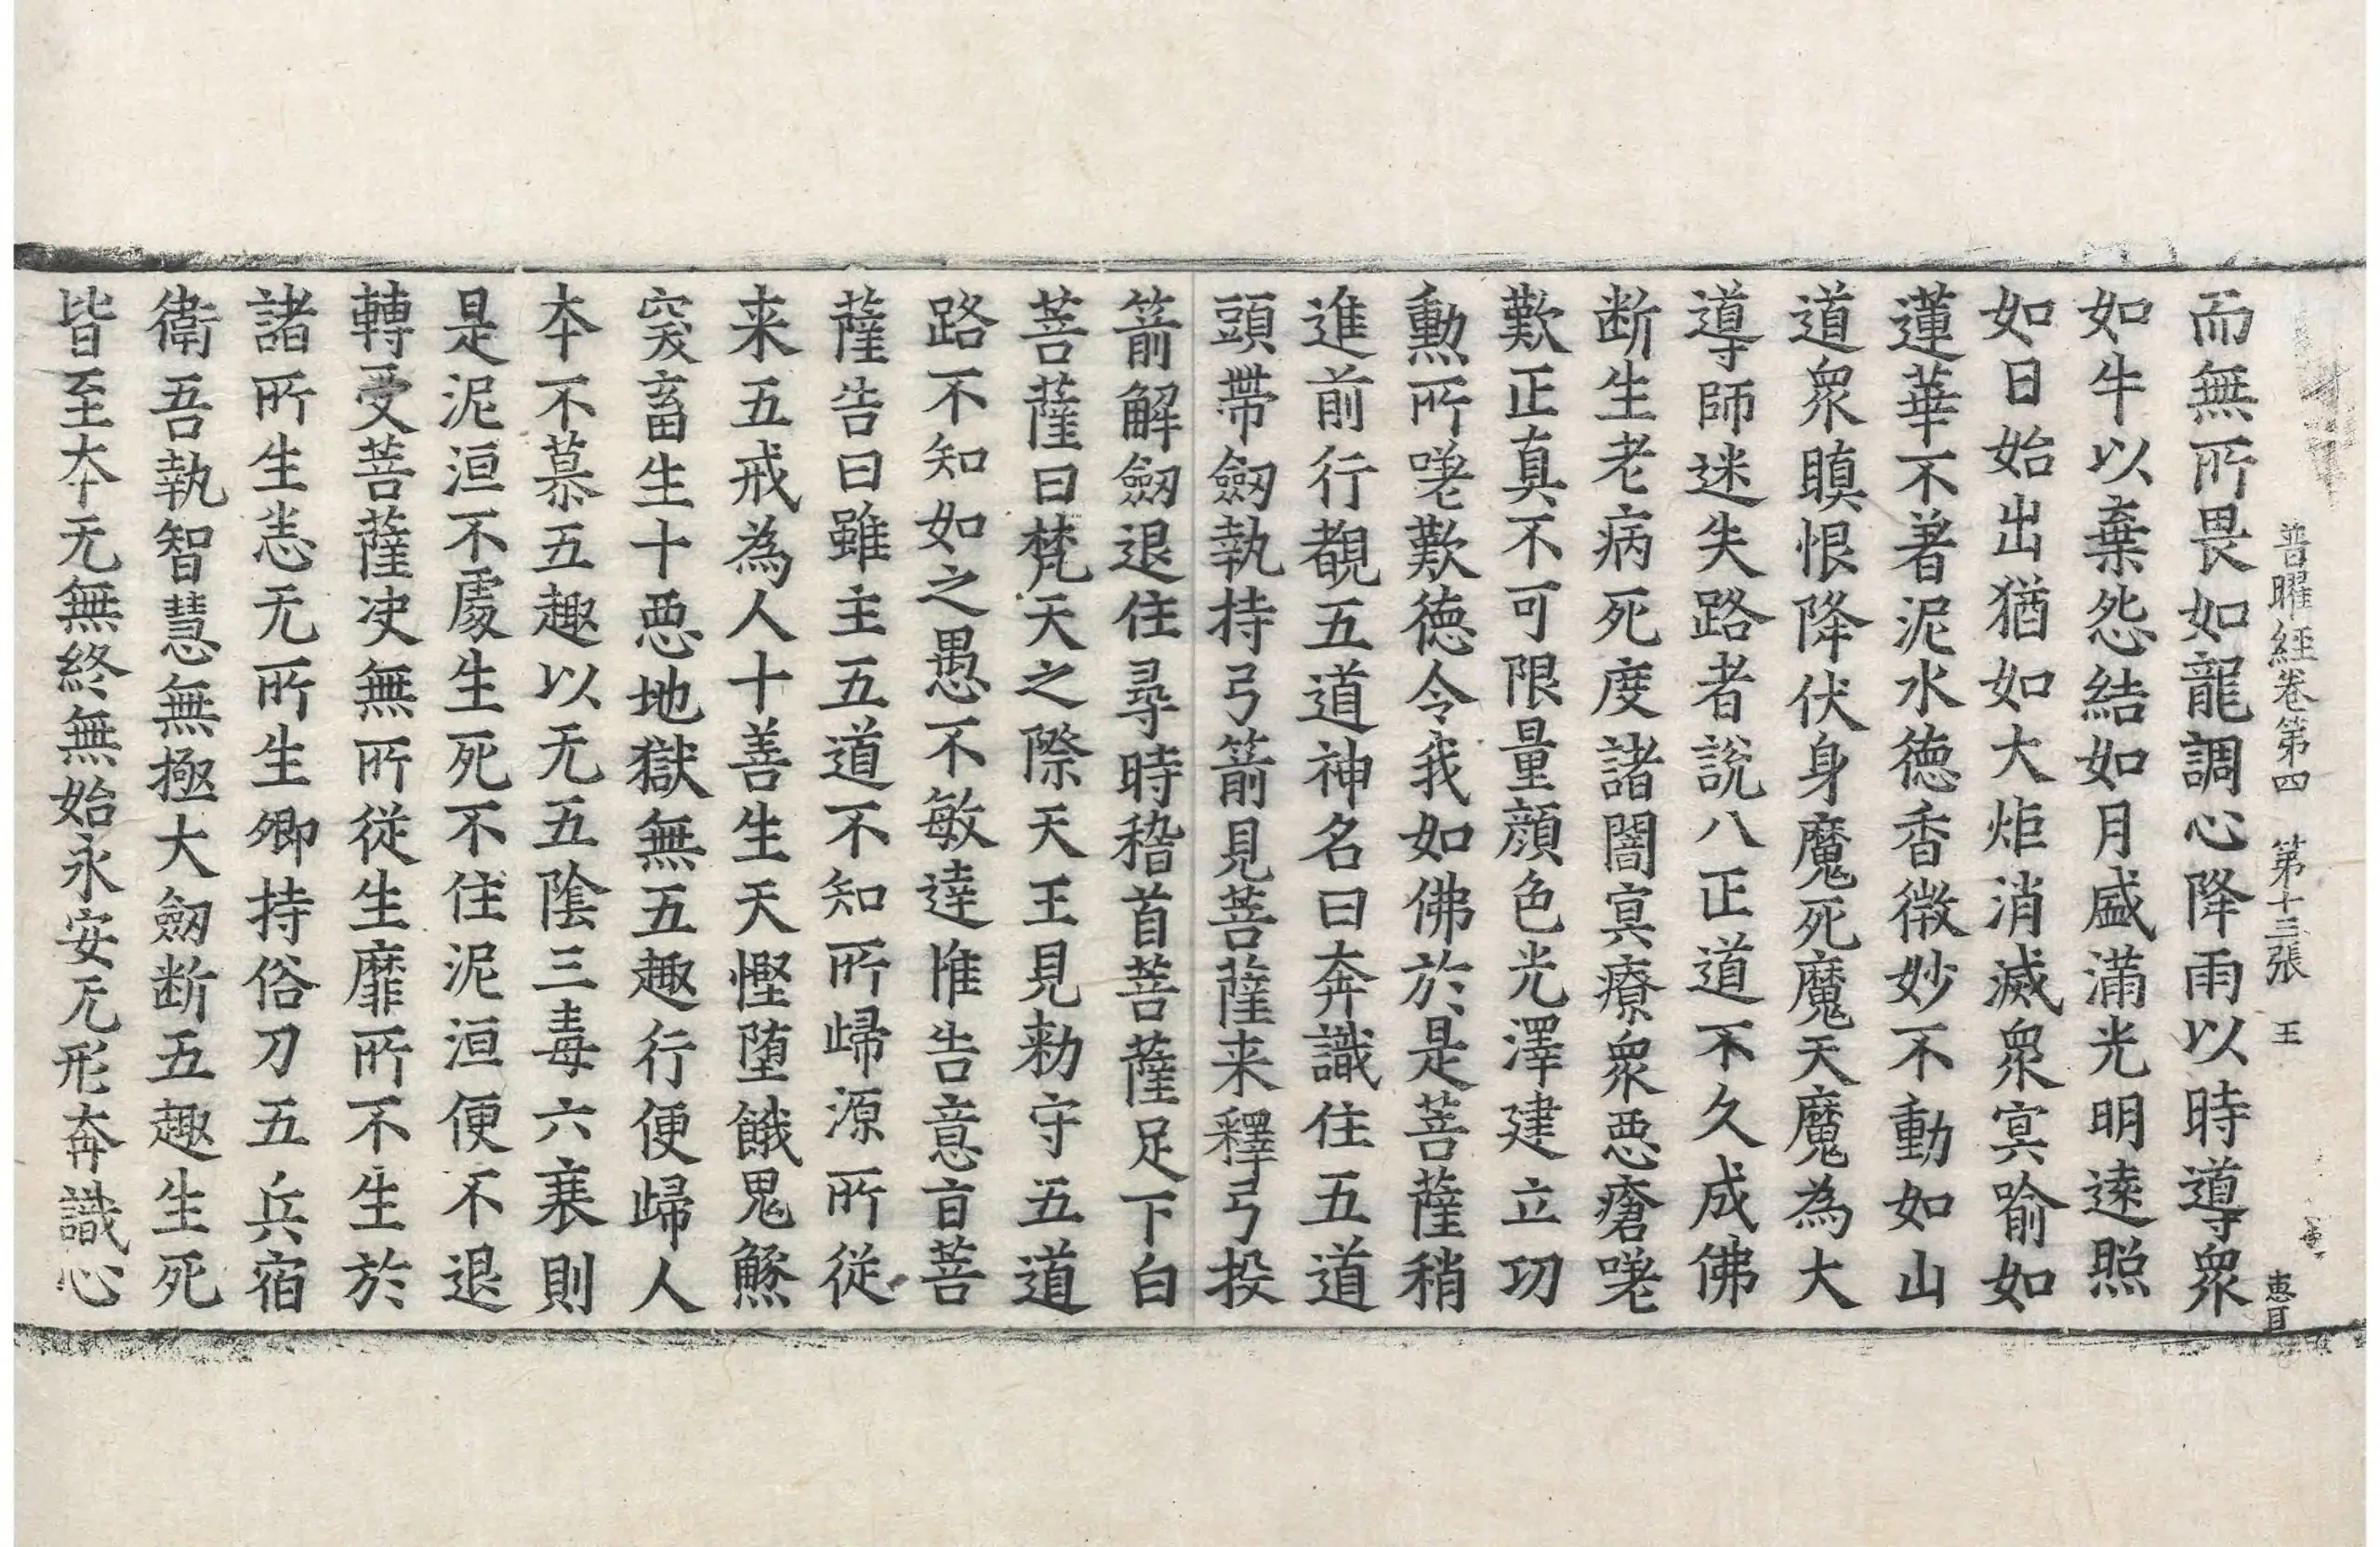 普曜經卷第四　第十三張　王
惠耳
而無所畏如龍調心降雨以時導衆
如牛以棄怨結如月盛滿光明遠照
如日始出猶如大炬消滅衆冥喻如
蓮華不著泥水徳香微妙不動如山
道衆瞋恨降伏身魔死魔天魔為大
導師迷失路者說八正道不久成佛
断生老病死度諸闇冥療衆惡瘡嗟
歎正真不可限量顔色光澤建立功
勲所嗟歎徳令我如佛於是菩薩稍
進前行覩五道神名曰奔識住五道
頭帶劔執持弓箭見菩薩来釋弓投
箭解劔退住尋時稽首菩薩足下白
菩薩曰梵天之際天王見勑守五道
路不知如之愚不敏達惟告意盲菩
薩告曰雖主五道不知所歸源所従
来五戒為人十善生天慳堕餓鬼觝
突畜生十惡地獄無五趣行便歸人
本不慕五趣以无五陰三毒六衰則
是泥洹不處生死不住泥洹便不退
轉受菩薩决無所従生靡所不生於
諸所生恙无所生卿持俗刀五兵宿
衛吾執智慧無極大劔断五趣生死
皆至本无無終無始永安无形奔識心